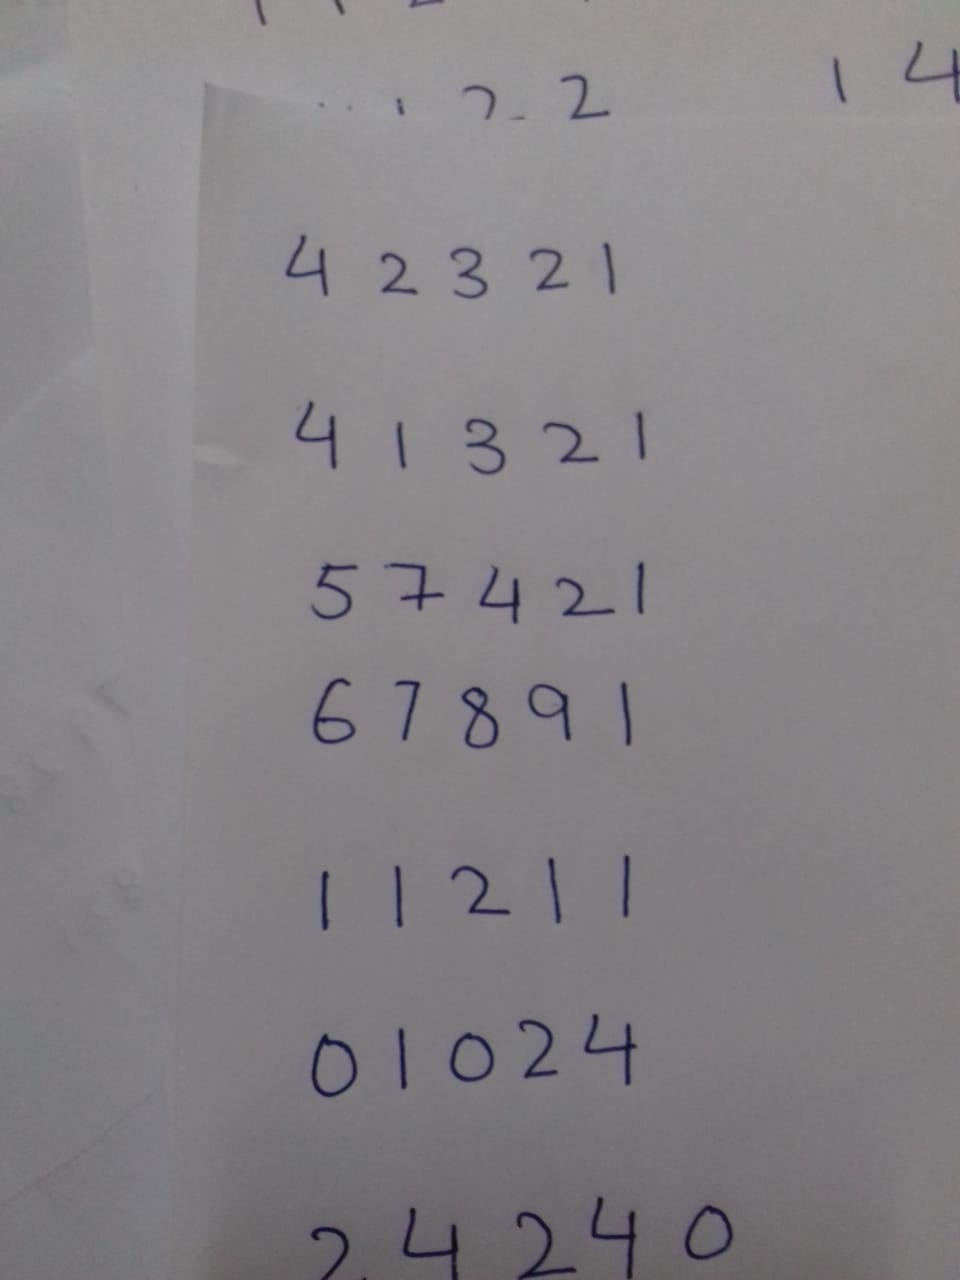 2 2 1 4
4 2 3 2 1
4 1 3 2 1
5 7 4 2 1
6 7 8 9 1
1 1 2 1 1
0 1 0 2 4
2 4 2 4 0